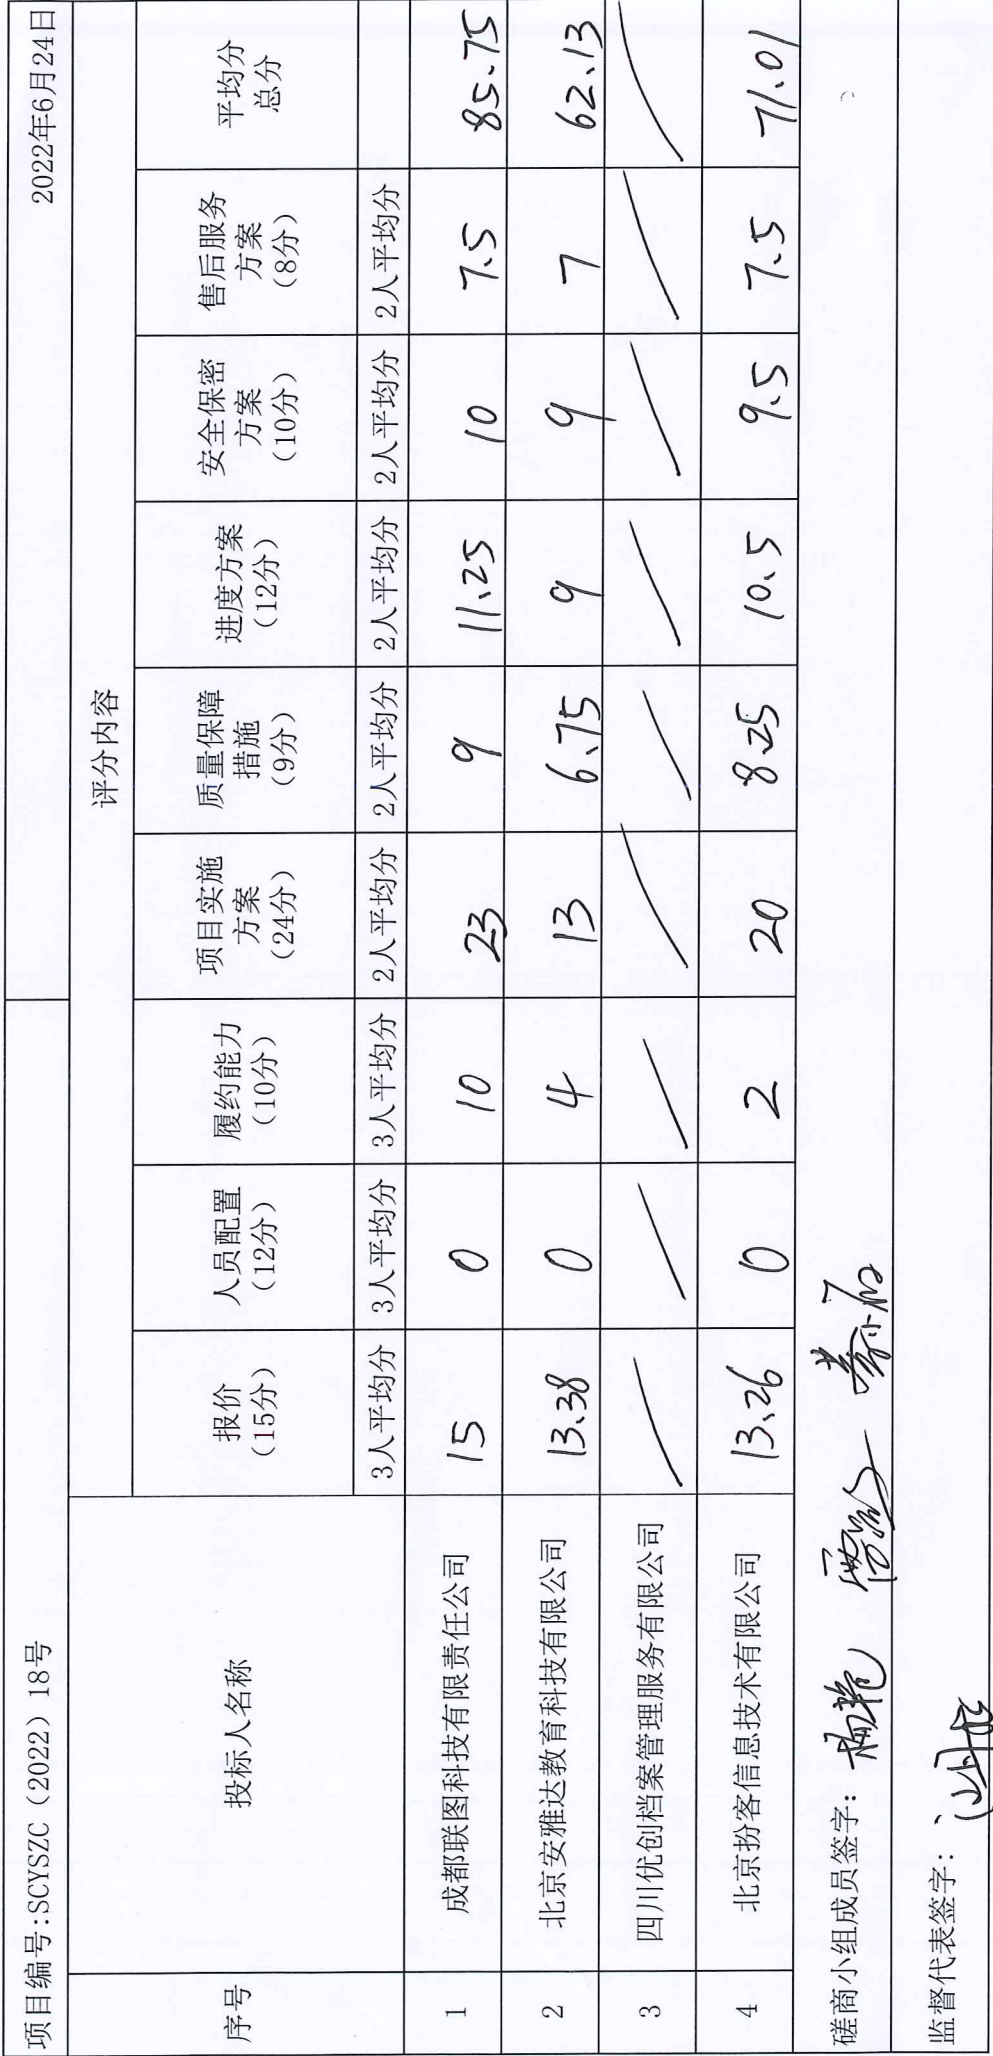 项目编号:SCYSZC（2022）18号 2022年6月24日
序号 投标人名称 评分内容
报价（15分） 人员配置（12分） 履约能力（10分） 项目实施方案（24分） 质量保障措施（9分） 进度方案（12分） 安全保密方案（10分） 售后服务方案（8分） 平均分总分
3人平均分 3人平均分 3人平均分 2人平均分 2人平均分 2人平均分 2人平均分 2人平均分
1 成都联图科技有限责任公司 15 0 10 23 9 11.25 10 7.5 85.75
2 北京安雅达教育科技有限公司 13.38 0 4 13 6.75 9 9 7 62.13
3 四川优创档案管理服务有限公司
4 北京扮客信息技术有限公司 13.26 0 2 20 8.25 10.5 9.5 7.5 71.01
磋商小组成员签字：
监督代表签字：